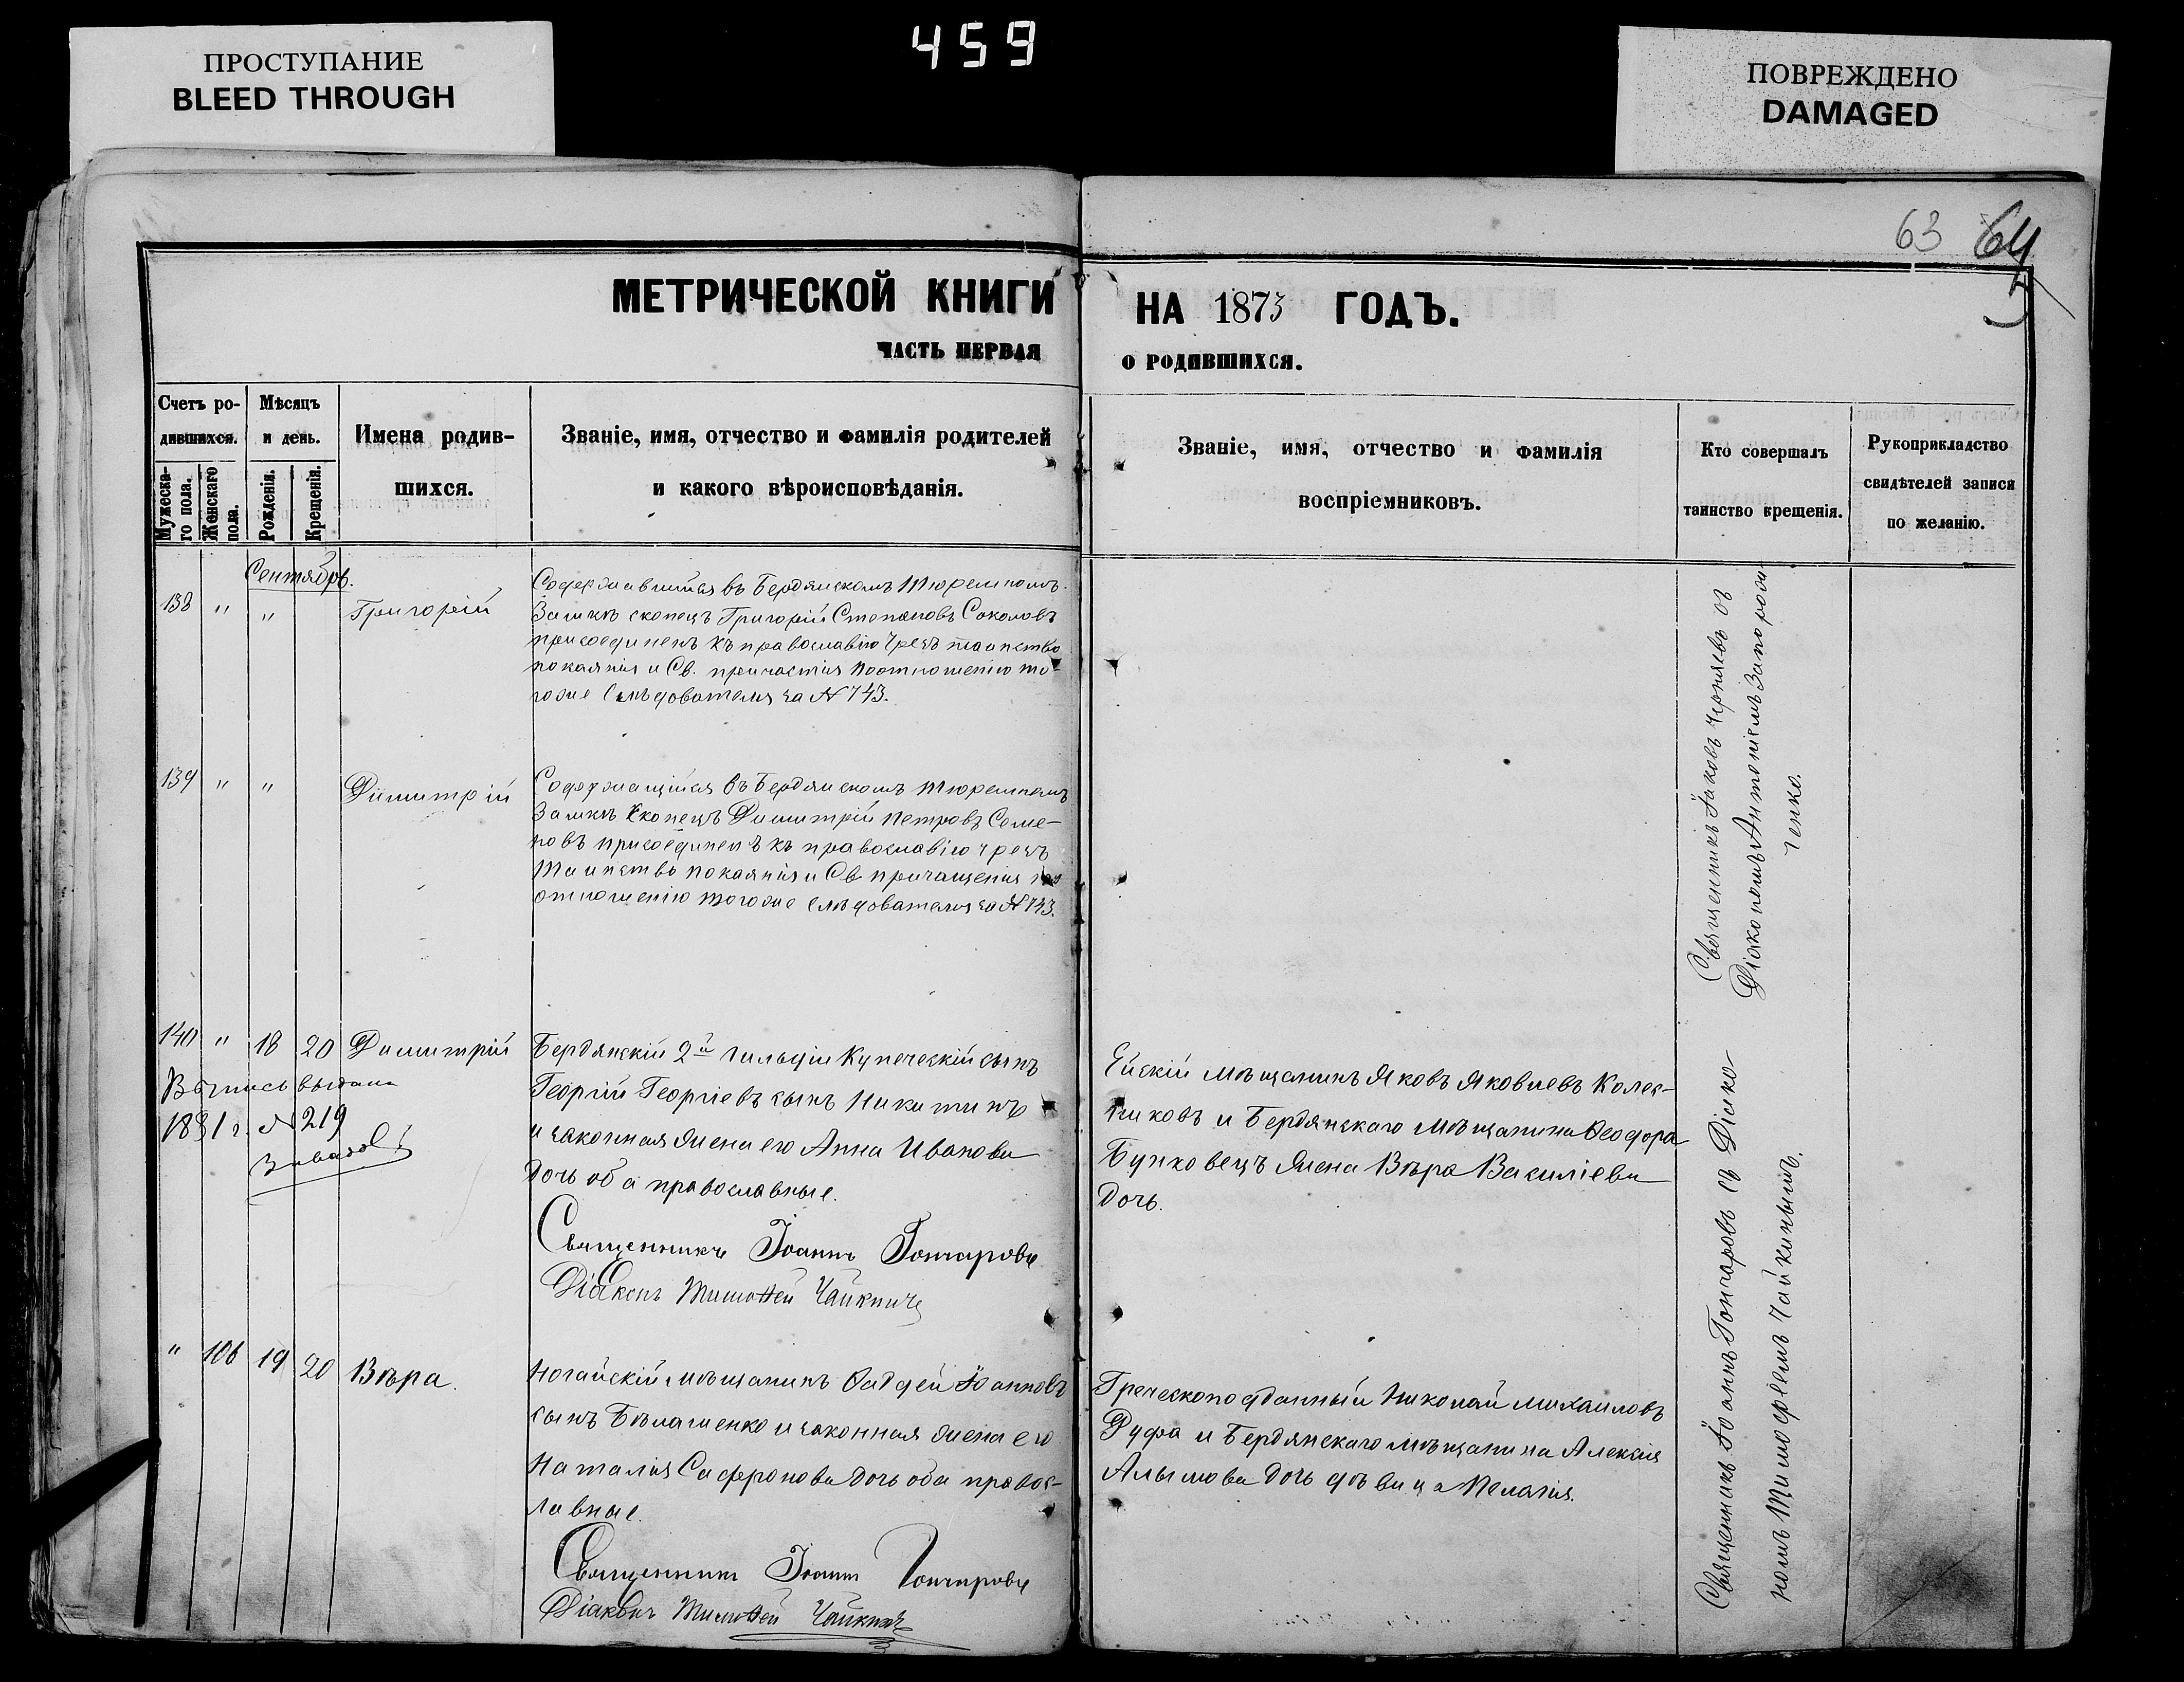 ПРОСТУПАНИЕ
BLEED THROUGH
459
ПОВРЕЖДЕНО
DAMAGED
63 64
МЕТРИЧЕСКОЙ КНИГИ НА 1873 ГОДЪ.
ЧАСТЬ ПЕРВАЯ О РОДИВШИХСЯ.
Счетъ ро-
дившихся.
Мужеска-
го пола.
Женскаго
пола.
Мѣсяцъ
и день.
Рожденія.
Крещенія.
Имена родив-
шихся.
Званіе, имя, отчество и фамилія родителей
и какого вѣроисповѣданія.
Званіе, имя, отчество и фамилія
воспріемниковъ.
Кто совершалъ
таинство крещенія.
Рукоприкладство
свидѣтелей записи
по желанію.
Сентябрь.
138 " " Григорій
Содержавшійся въ Бердянскомъ Тюремномъ
Замкѣ скопецъ Григорій Степановъ Соколовъ
присоединенъ къ православію чрезъ таинство
покаянія и Св. причастія по отношенію то-
гоже Слѣдователя за N 743.
139 " " Димитрій
Содержащійся въ Бердянскомъ Тюремномъ
Замкѣ Скопецъ Димитрій Петровъ Семе-
новъ присоединенъ къ православію чрезъ
Таинство покаянія и Св. причащенія по
отношенію тогоже слѣдователя за N 743.
Священникъ Іаковъ Черняевъ съ
Діакономъ Антоніемъ Запорож-
ченко.
140 " 18 20 Димитрій
Выпись выдана
1881 г. N 219
Бердянскій 2й гильдіи Купеческій сынъ
Георгій Георгіевъ сынъ Никитинъ
и законная жена его Анна Иванова
дочь оба православные.
Священникъ Іоаннъ Гончаровъ
Діаконъ Тимоѳей Чайкинъ
Ейскій мѣщанинъ Яковъ Яковлевъ Колес-
никовъ и Бердянскаго мѣщанина Ѳеодора
Бунковецъ жена Вѣра Василіева
дочь.
" 106 19 20 Вѣра.
Ногайскій мѣщанинъ Ѳаддей Іоанновъ
сынъ Бѣлашенко и законная жена его
Наталія Сафронова дочь оба правос-
лавные.
Священникъ Іоаннъ Гончаровъ
Діаконъ Тимоѳей Чайкинъ
Греческоподданный Николай Михаиловъ
Руфа и Бердянскаго мѣщанина Алексія
Алымова дочь дѣвица Пелагія.
Священникъ Іоаннъ Гончаровъ съ Діако-
номъ Тимофеемъ Чайкинымъ.